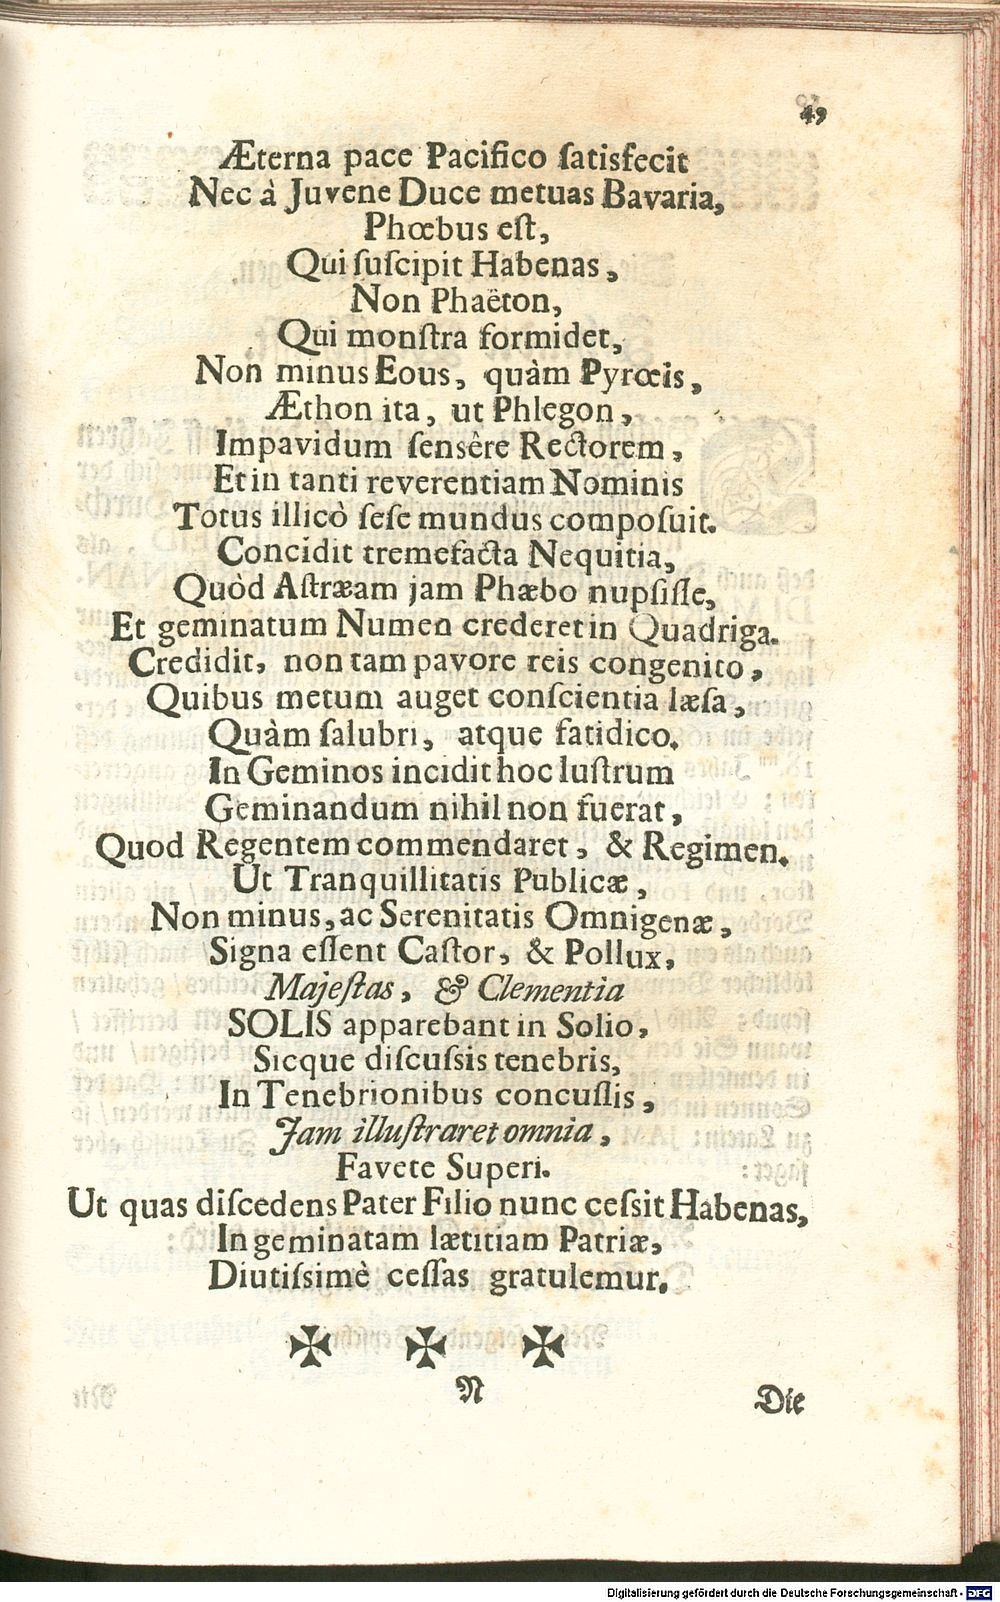 49
Æterna pace Pacifico ſatisfecit
Nec à Juvene Duce metuas Bavaria,
Phœbus eſt,
Qui ſuſcipit Habenas,
Non Phaëton,
Qui monſtra formidet,
Non minus Eous, quàm Pyrœis,
Æthon ita, ut Phlegon,
Impavidum ſensêre Rectorem,
Et in tanti reverentiam Nominis
Totus illicò ſeſe mundus compoſuit.
Concidit tremefacta Nequitia,
Quòd Aſtræam jam Phæbo nupſiſſe,
Et geminatum Numen crederet in Quadriga.
Credidit, non tam pavore reis congenito,
Quibus metum auget conſcientia læſa,
Quàm ſalubri, atque fatidico.
In Geminos incidit hoc luſtrum
Geminandum nihil non fuerat,
Quod Regentem commendaret, & Regimen.
Ut Tranquillitatis Publicæ,
Non minus, ac Serenitatis Omnigenæ,
Signa eſſent Caſtor, & Pollux,
Majeſtas, & Clementia
SOLIS apparebant in Solio,
Sicque diſcuſsis tenebris,
In Tenebrionibus concuſſis,
Jam illuſtraret omnia,
Favete Superi.
Ut quas diſcedens Pater Filio nunc ceſsit Habenas,
In geminatam lætitiam Patriæ,
Diutiſsimè ceſſas gratulemur.
N
Die
Digitalisierung gefördert durch die Deutsche Forschungsgemeinschaft - DFG